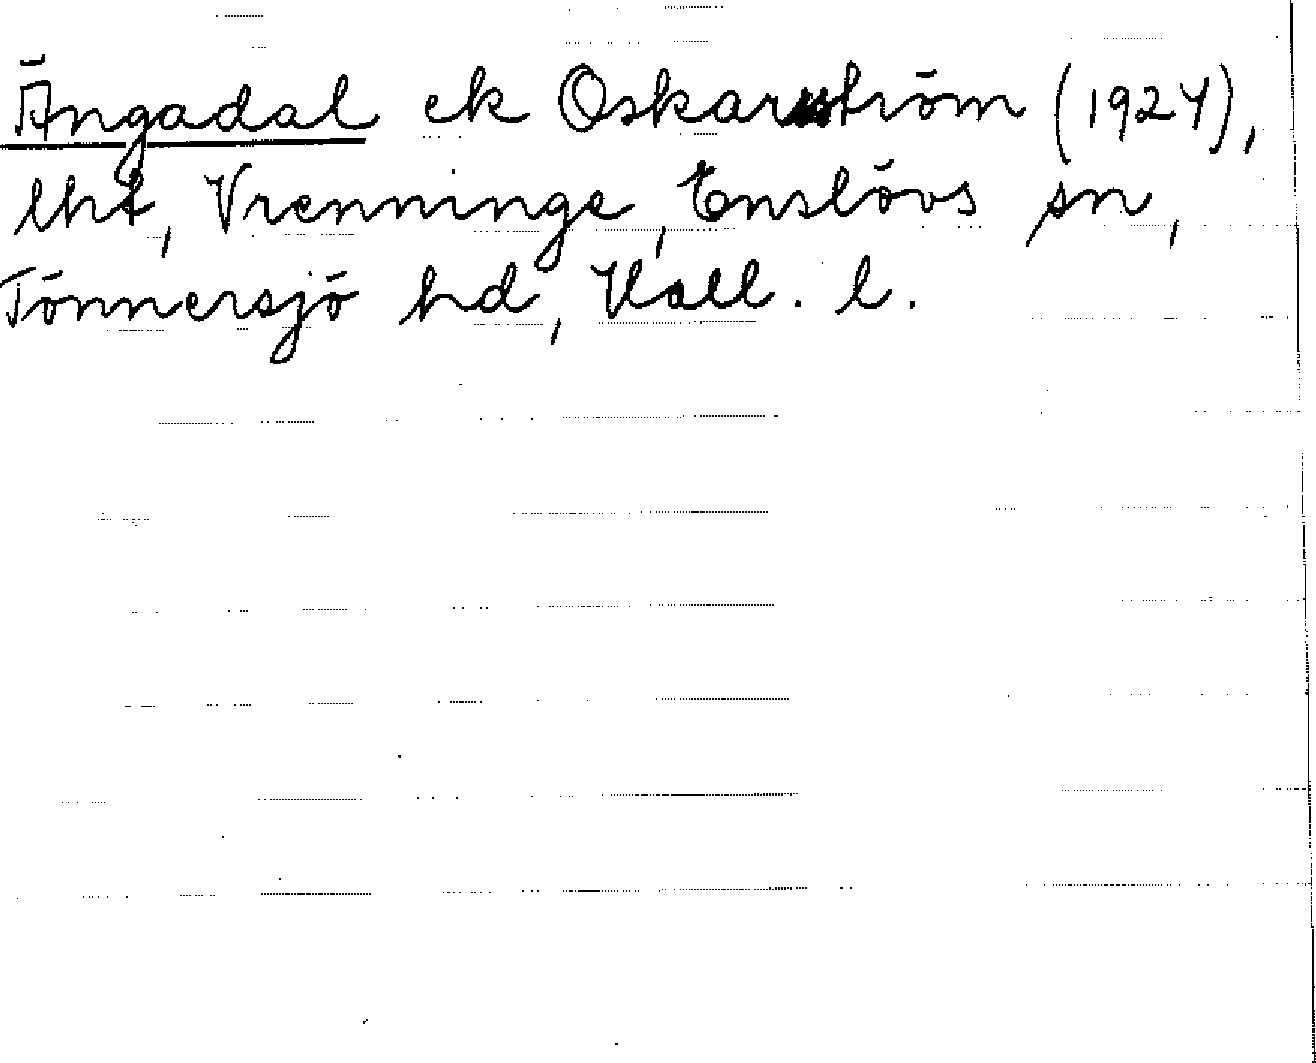 Ängadal ek Oskarström (1924),
lht, Vrenninge, Enslövs sn,
Tönnersjö hd, Hall. l.